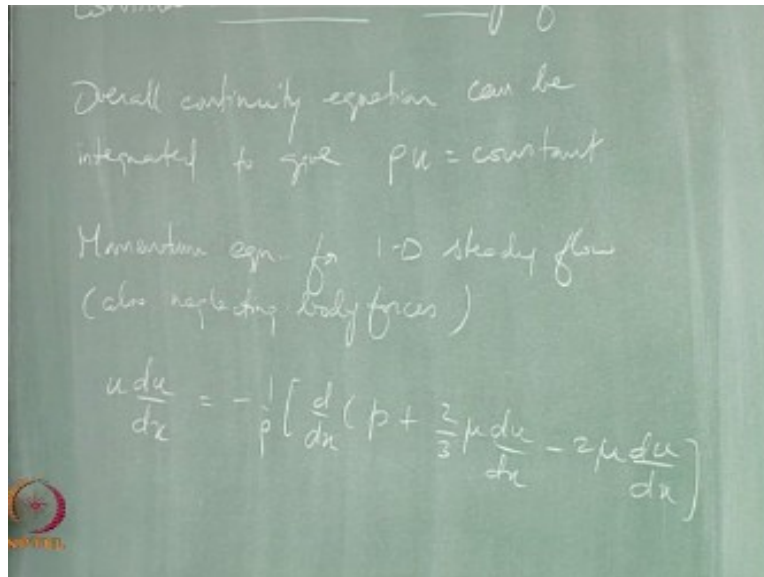 Overall continuity equation can be
integrated to give ρu = constant
Momentum eqn. for 1-D steady flow
(also neglecting body forces)
u du/dx = - 1/ρ [ d/dx ( p + 2/3 μ du/dx - 2μ du/dx ]
NPTEL